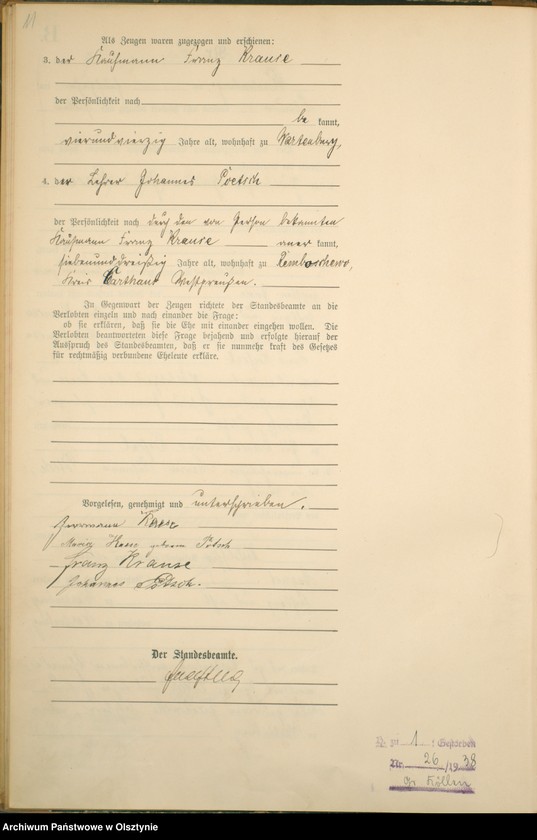 11
Als Zeugen waren zugezogen und erschienen:
3. der Kaufmann Franz Krause
der Persönlichkeit nach
be kannt,
vierundvierzig Jahre alt, wohnhaft zu Wartenburg,
4. der Lehrer Johannes Poetsch
der Persönlichkeit nach durch den von Person bekannten
Kaufmann Franz Krause aner kannt,
siebenunddreißig Jahre alt, wohnhaft zu
Kreis Carthaus Westpreußen.
In Gegenwart der Zeugen richtete der Standesbeamte an die
Verlobten einzeln und nach einander die Frage:
ob sie erklären, daß sie die Ehe mit einander eingehen wollen. Die
Verlobten beantworteten diese Frage bejahend und erfolgte hierauf der
Ausspruch des Standesbeamten, daß er sie nunmehr kraft des Gesetzes
für rechtmäßig verbundene Eheleute erkläre.
Vorgelesen, genehmigt und unterschrieben.
Herrmann
geborene
Franz Krause
Johannes Pötsch.
Der Standesbeamte.
zu 1 : Gestorben
Nr. 26 /19 38
Gr. Köllen
Archiwum Państwowe w Olsztynie